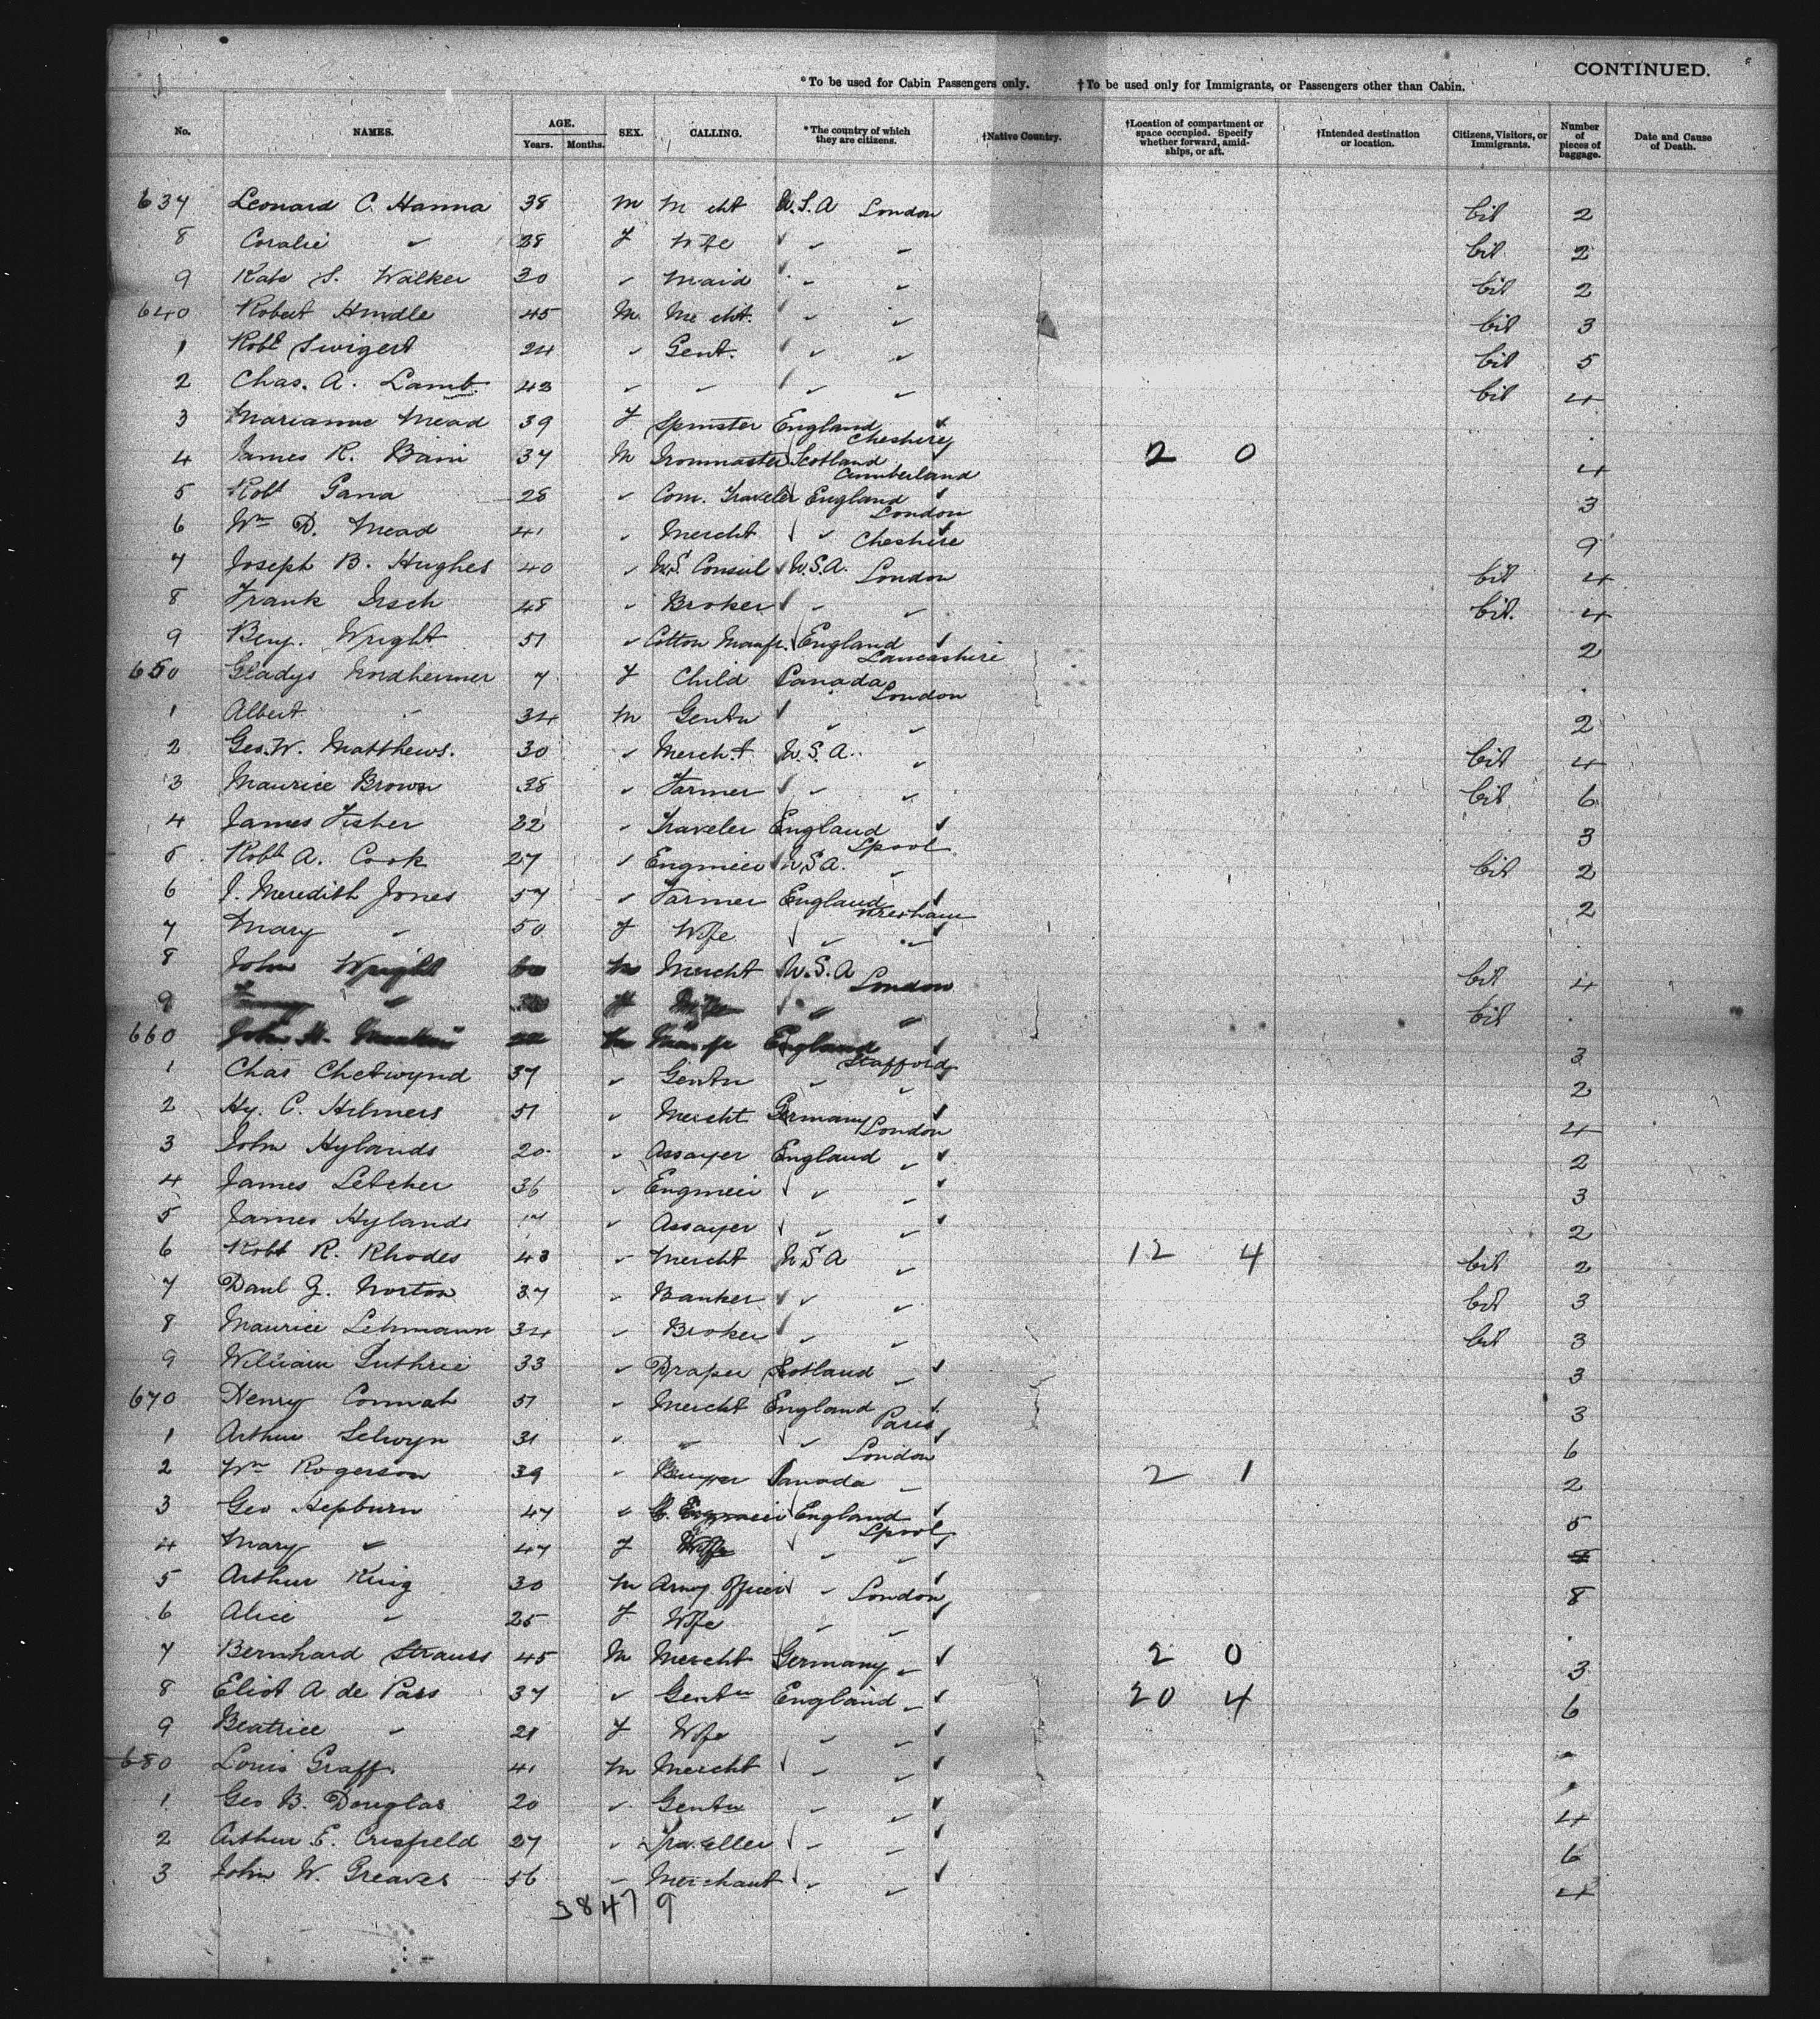 CONTINUED.
*To be used for Cabin Passengers only. †To be used only for Immigrants, or Passengers other than Cabin.
No. NAMES. AGE. Years. Months. SEX. CALLING. *The country of which they are citizens. †Native Country. †Location of compartment or space occupied. Specify whether forward, amidships, or aft. †Intended destination or location. Citizens, Visitors, or Immigrants. Number of pieces of baggage. Date and Cause of Death.
637 Leonard C. Hanna 38 M Mcht U.S.A London Cit 2
8 Coralie " 28 F Wife " " Cit 2
9 Kate S. Walker 30 " Maid " " Cit 2
640 Robert Hindle 45 M Mecht. " " Cit 3
1 Robt Swigert 24 " Gent. " " Cit 5
2 Chas. A. Lamb 43 " " " " Cit 4
3 Marianne Mead 39 F Spinster England Cheshire .
4 James R. Bain 37 M Ironmaster Scotland Cumberland 2 0 4
5 Robt 28 " Com. Traveler England London 3
6 Wm D. Mead 41 " Mercht " Cheshire 9
7 Joseph B. Hughes 40 " U.S. Consul U.S.A. London Cit 4
8 Frank 48 " Broker " " Cit. 4
9 Benj. Wright 51 " Cotton Manfr. England Lancashire 2
650 Gladys Nordheimer 7 F Child Canada London .
1 Albert " 34 M Gentn " " 2
2 Geo. W. Matthews. 30 " Mercht U.S.A. " Cit 4
3 Maurice Brown 38 " Farmer " " Cit 6
4 James Fisher 22 " Traveler England Lpool 3
5 Robt A. Cook 27 " Engineer U.S.A. " Cit 2
6 J. Meredith Jones 57 " Farmer England Wrexham 2
7 Mary " 50 F Wife " " .
8 John Wright M Mercht U.S.A London Cit 4
9 " F " " Cit .
660 John H. M Manfr England Stafford 3
1 Chas Chetwynd 37 " Gentn " " 2
2 Hy. C. Hilmers 51 " Mercht Germany London 4
3 John Hylands 20 " Assayer England " 2
4 James Letcher 36 " Engineer " " 3
5 James Hylands 17 " Assayer " " 2
6 Robt R. Rhodes 43 " Mercht U.S.A " 12 4 Cit 2
7 Danl Z. Norton 37 " Banker " " Cit 3
8 Maurice Lehmann 34 " Broker " " Cit 3
9 William Guthrie 33 " Draper Scotland " 3
670 Henry Connah 51 " Mercht England Paris 3
1 Arthur Selwyn 31 " " " London 6
2 Wm Rogerson 39 " Buyer Canada " 2 1 2
3 Geo Hepburn 47 " C. Engineer England Lpool 5
4 Mary " 47 F Wife " "
5 Arthur King 30 M Army Officer " London 8
6 Alice " 25 F Wife " " .
7 Bernhard Strauss 45 M Mercht Germany " 2 0 3
8 Eliot A de Pass 37 " Gentn England " 20 4 6
9 Beatrice " 28 F Wife " "
680 Louis Graff 41 M Mercht " "
1 Geo. B. Douglas 20 " Gentn " " 4
2 Arthur E. Crisfield 27 " Traveller " " 6
3 John W. Greaves 56 " Merchant " " 4
38479